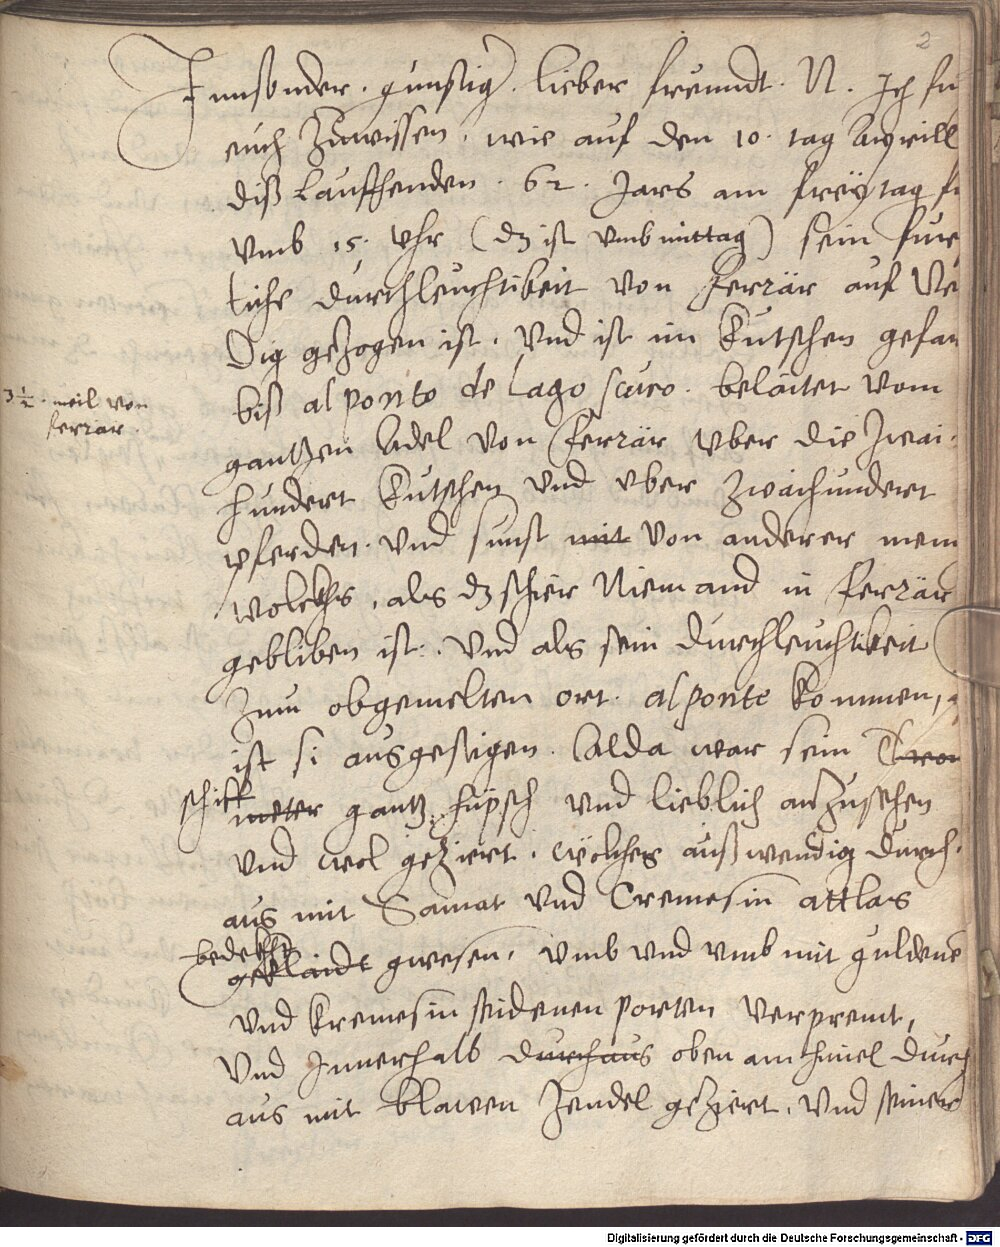 2
Innsonder. günstig. lieber freündt. N. Ich fu
euch Zuwissen. wie auf den 10. tag Apprill
diß Lauffenden. 62. Jars am freÿtag
vmb 15. vhr (dz ist vmb mittag) sein fürst
liche durchleuchtikeit von Ferrär auf Ve
dig gezogen ist. Vnd ist im Kutschen gefar
biß al ponto de Lago scuro. belaitet vom
3 1/2. meil von
ferrar.
gantzen Adel von Ferrär vber die Zwai-
hundert Kutschen vnd vber Zwaihundert
pferden. vnd sunst mit von anderer
volckhs, als dz schier Niemand in ferrär
gebliben ist. Vnd als sein durchleuchtikeit
Zum obgemelten ort. al ponte kommen,
ist si ausgestigen. Alda war sein
schiff
gantz hüpsch vnd lieblich anzusehen
vnd wol geziert. wölches außwendig durch-
aus mit Samat vnd Cremesin attlas
bedekht
geklaidt gwesen. vmb vnd vmb mit guldene
vnd kremesin seidenen porten verpremt,
Vnd Innerhalb durchaus oben am himel durch
aus mit blawen Zendel geziert. Vnd seiner
Digitalisierung gefördert durch die Deutsche Forschungsgemeinschaft - DFG